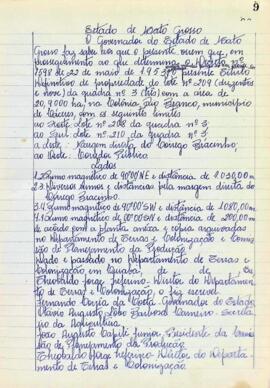 9
Estado de Mato Grosso
O Governador do Estado de Mato
Grosso faz saber aos que o presente virem que, em
prosseguimento ao que determina o Decreto nº
1598 de 22 de maio de 1953 presente Título
Definitivo de propriedade do lote nº 209 (duzentos
e nove) da quadra nº 3 (três) com a área de
20,9000 ha, na Colônia Rio Branco, município
de Cáceres, com os seguintes limites
ao Norte: Lote nº 208 da quadra nº 3,
ao Sul: Lote nº 210 da quadra nº 3;
a Leste: Margem direita do Córrego Bracinho;
ao Oeste: Corredor Público
Lados
1. Rumo magnético de 90º00'NE e distância de 1.030,00 m.
2. Diversos rumos e distâncias pela margem direita do
Córrego Bracinho.
3. Rumo magnético de 90º00'SW e distância de 1.080,00 m.
4. Rumo magnético de 0º00'SW e distância de 200,00 m
de acordo com a planta anexa e cópia arquivadas
no Departamento de Terras e Colonização e Comis
são de Planejamento da Produção.
Dado e passado no Departamento de Terras e
Colonização em Cuiabá, de de de
Theobaldo Jorge - Diretor do Departamen
to de Terras e Colonização, o fiz escrever.
Fernando Corrêa da Costa Governador do Estado
Augusto
da Agricultura.
João Augusto Capilé Junior, Presidente da Comis
são de Planejamento da Produção
Theobaldo Jorge - Diretor do Departa
mento de Terras e Colonização